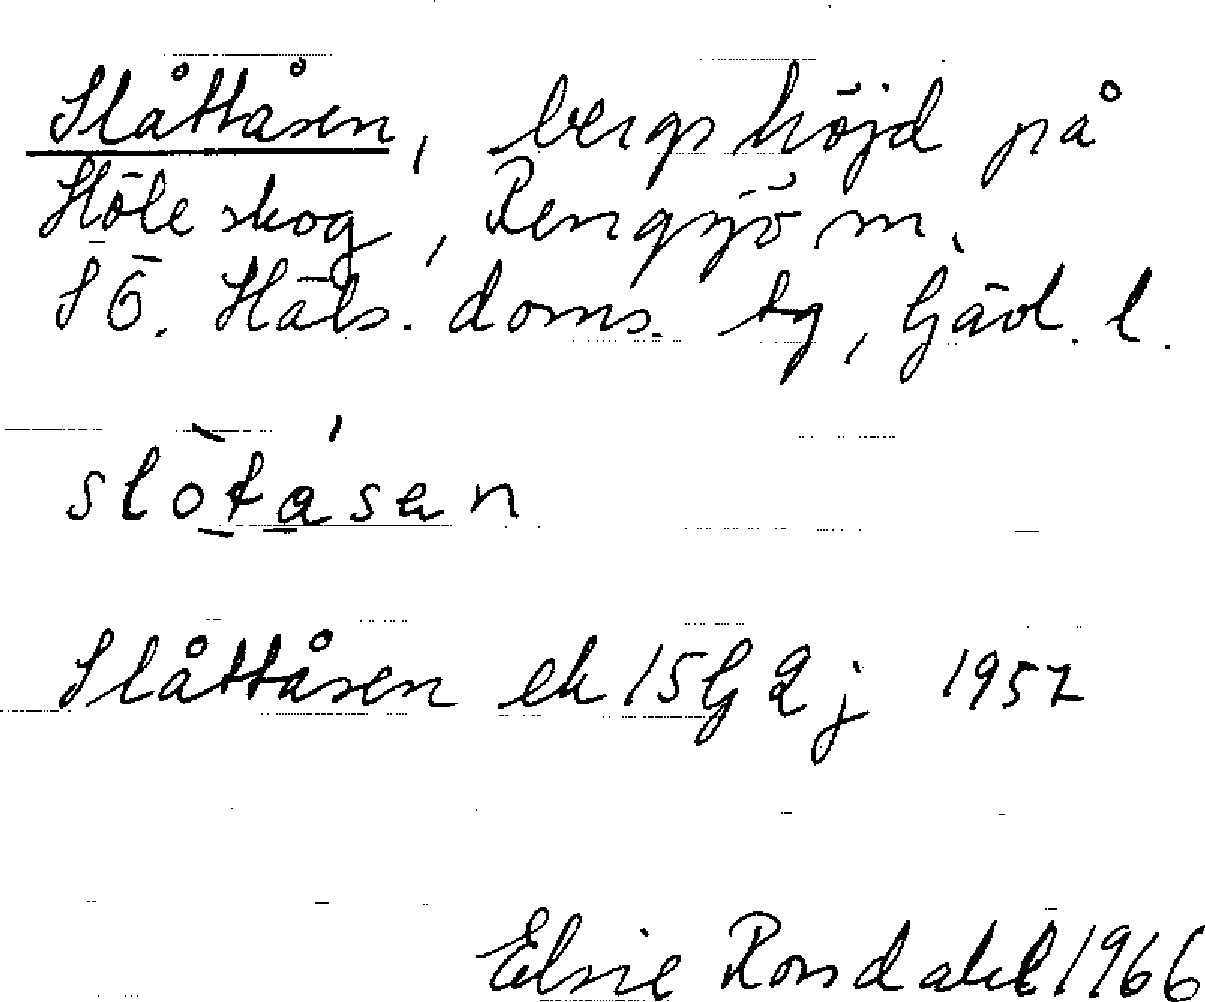 Slåttåsen, bergshöjd på
Höle skog, Rengsjö sn,
SÖ. Häls. doms. tg, Gävl. l.
slòtásen
Slåttåsen ek 15G 2 j 1957
Elsie 1966